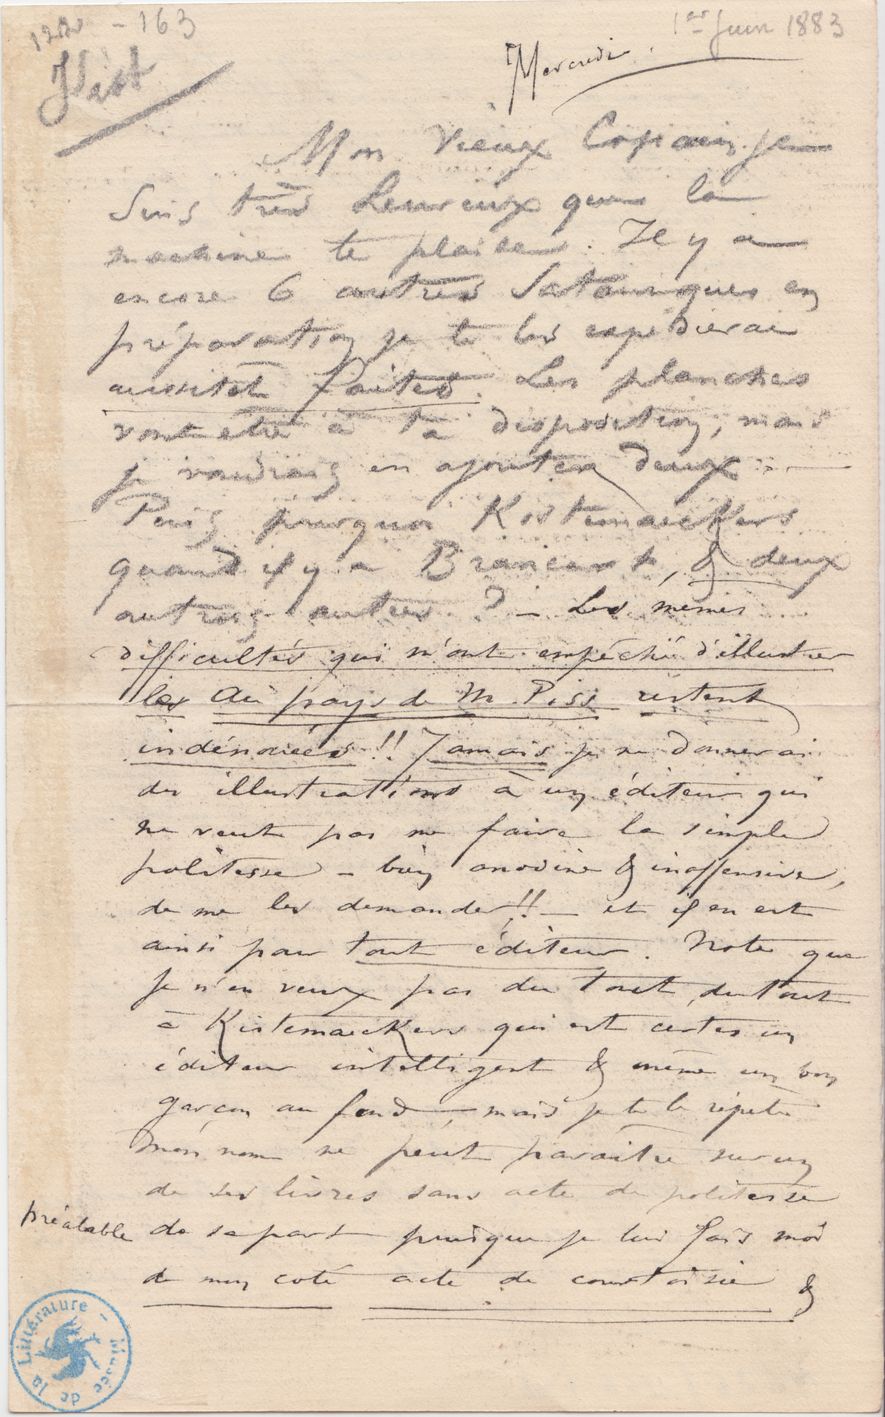 122 - 163
1er Juin 1883
Mercredi.
Mon Vieux Copain, je
suis très heureux que la
machine te plaise. Il y a
encore 6 autres Sataniques en
préparation je te les expédierai
aussitôt faites. Les planches
vont être à ta disposition, mais
je voudrais en ajouter deux. –
Puis pourquoi Kistemaeckers
quand il y a Brancart, & deux
ou trois autres ? – Les mêmes
difficultés qui m'ont empêché d'illustrer
les Au pays de M. Piss restent
indénouées !! Jamais je ne donnerai
des illustrations à un éditeur qui
ne veut pas me faire la simple
politesse – bien anodine & inoffensive,
de me les demander !! – et il en est
ainsi pour tout éditeur. Note que
je n'en veux pas du tout, du tout
à Kistemaeckers qui est certes un
éditeur intelligent & même un bon
garçon au fond –, mais je te le répète
mon nom ne peut paraître sur un
de ses livres sans acte de politesse
préalable de sa part puisque je lui fais moi
de mon coté acte de courtoisie &
Musée de la Littérature –